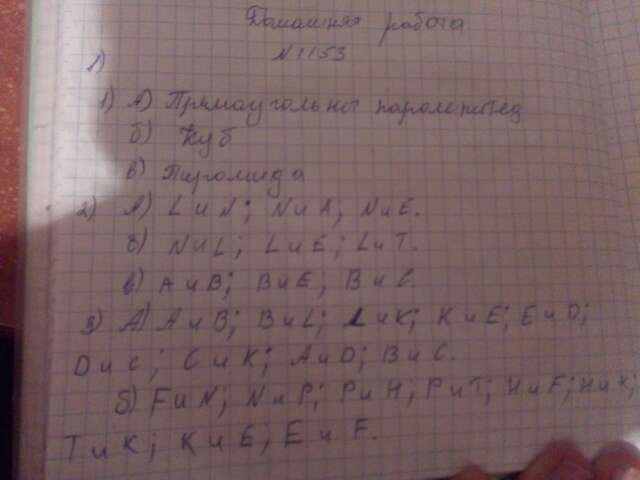 Домашняя работа
N 1153
1)
1) А) Прямоугольный паролепипед
б) Куб
в) Пиромида
2) А) L и N; N и A; N и E.
б) N и L; L и E; L и T.
в) А и В; В и Е; В и С.
3) А) А и В; В и L; L и K; К и Е; Е и D;
D и C; С и К; А и D; В и С.
б) F и N; N и P; P и H; P и T; H и F; H и K;
T и K; K и E; E и F.